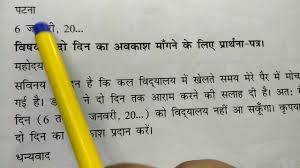 पटना
6 ज री, 20...
विषय दो दिन का अवकाश माँगने के लिए प्रार्थना-पत्र।
महोदय
सविनय दन है कि कल विद्यालय में खेलते समय मेरे पैर में मोच
गई है। डॉ ने दो दिन तक आराम करने की सलाह दी है। अतः मैं
दिन (6 त जनवरी, 20...) को विद्यालय नहीं आ सकूँगा। कृपया
दो दिन का काश प्रदान करें।
धन्यवाद